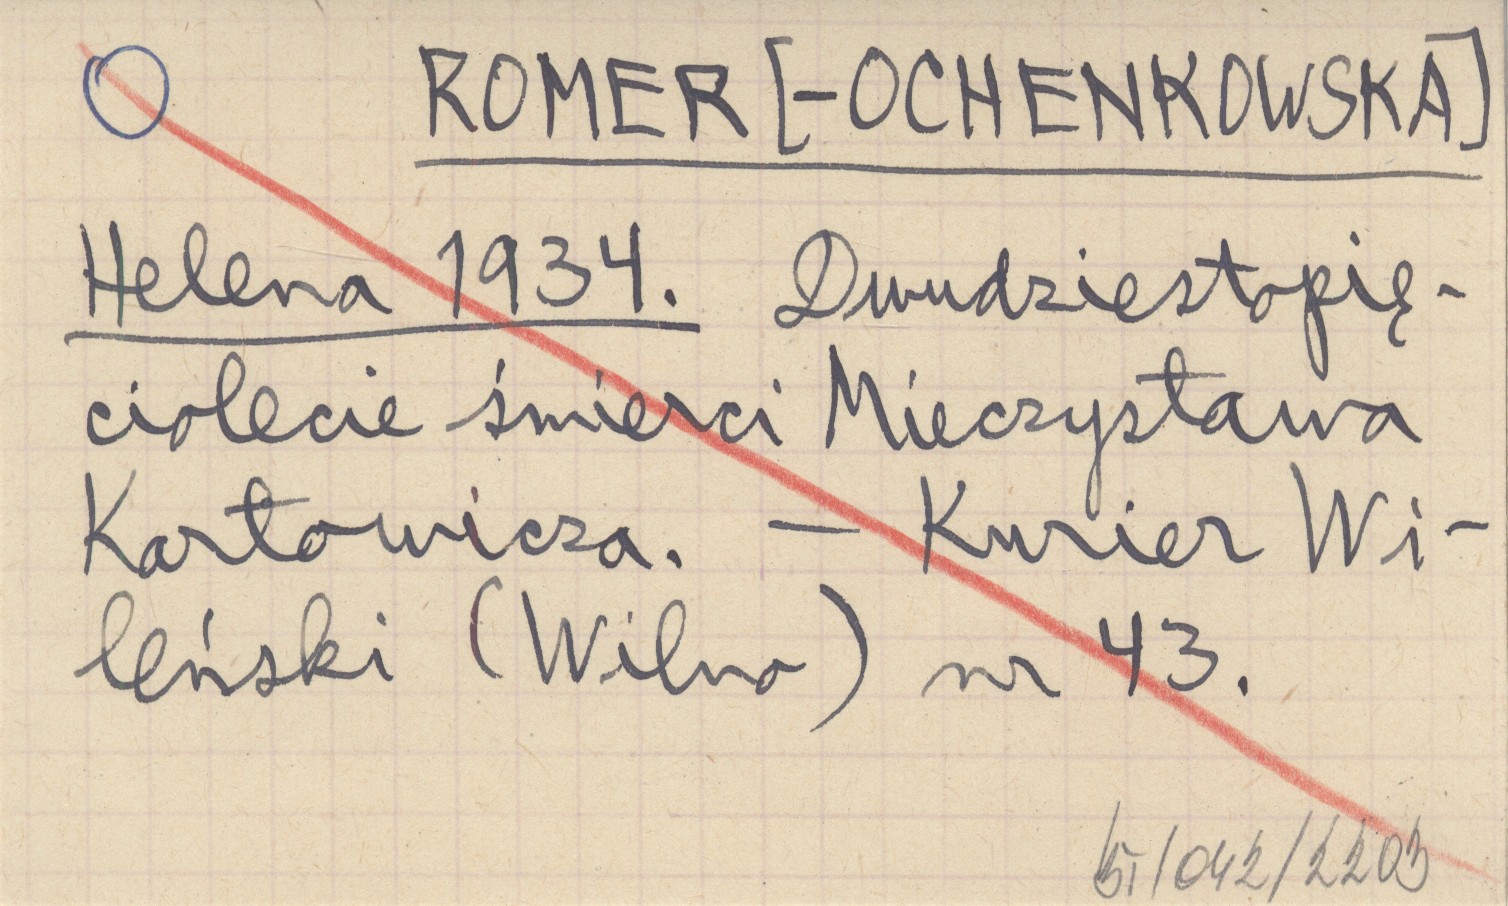 ROMER [-OCHENKOWSKA]
Helena 1934. Dwudziestopię-
ciolecie śmierci Mieczysława
Karłowicza. — Kurier Wi-
leński (Wilno) nr 43.
/042/2203